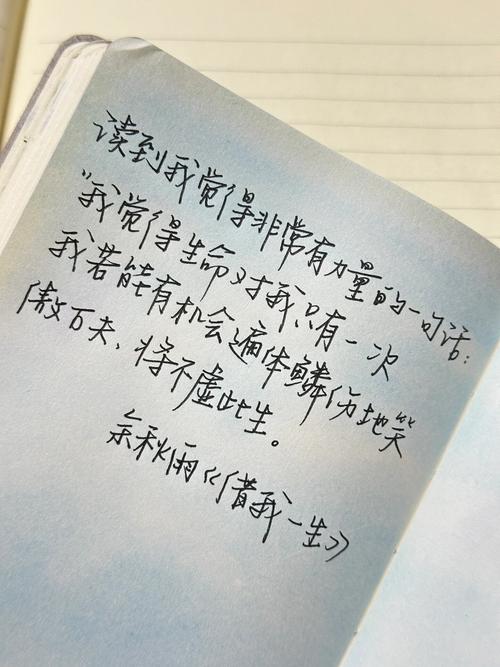 读到我觉得非常有力量的一句话:
"我觉得生命对我只有一次
我若能有机会遍体鳞伤地笑
傲百夫、将不虚此生。
余秋雨《借我一生》